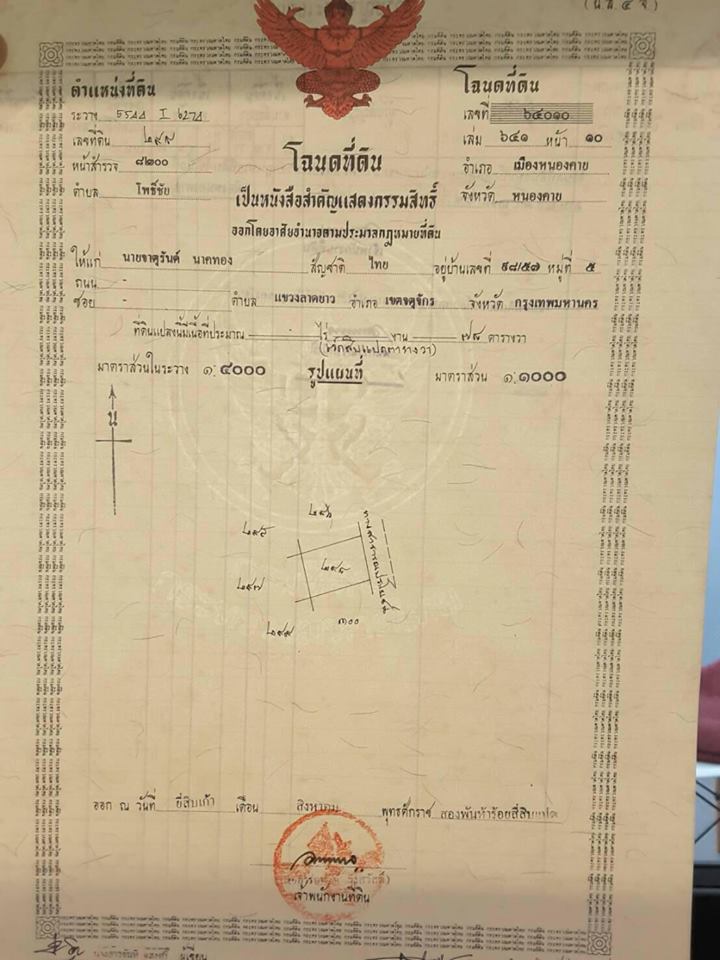 (น.ส. ๔ จ)
ตำแหน่งที่ดิน
ระวาง 5544 I 6274
เลขที่ดิน ๒๙๘
หน้าสำรวจ ๘๒๐๐
ตำบล โพธิ์ชัย
โฉนดที่ดิน
เลขที่ ๖๔๐๑๐
เล่ม ๖๔๑ หน้า ๑๐
อำเภอ เมืองหนองคาย
จังหวัด หนองคาย
โฉนดที่ดิน
เป็นหนังสือสำคัญแสดงกรรมสิทธิ์
ออกโดยอาศัยอำนาจตามประมวลกฎหมายที่ดิน
ให้แก่ นายจาตุรันต์ นาคทอง สัญชาติ ไทย อยู่บ้านเลขที่ ๙๘/๕๗ หมู่ที่ ๕
ถนน -
ซอย - ตำบล แขวงลาดยาว อำเภอ เขตจตุจักร จังหวัด กรุงเทพมหานคร
ที่ดินแปลงนี้มีเนื้อที่ประมาณ - ไร่ งาน ๗๘ ตารางวา
(เจ็ดสิบแปดตารางวา)
มาตราส่วนในระวาง ๑:๔๐๐๐ รูปแผนที่ มาตราส่วน ๑:๑๐๐๐
น
๒๙๖
๒๙๕
๒๙๘
๒๙๗
๓๐๐
๒๙๙
ทางสาธารณประโยชน์
ออก ณ วันที่ ยี่สิบเก้า เดือน สิงหาคม พุทธศักราช สองพันห้าร้อยสี่สิบแปด
เจ้าพนักงานที่ดิน
ผู้เขียน